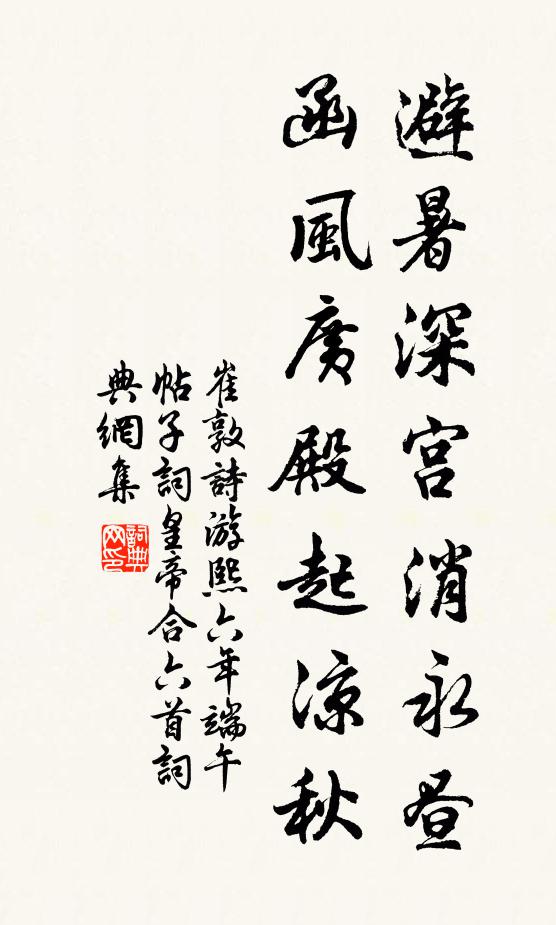 避暑深宮消永昼
函風廣殿起涼秋
崔敦詩游熙六年端午
帖子詞皇帝合六首詞
典網集
詞典网印